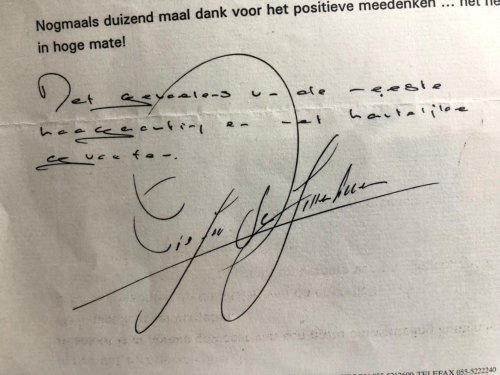 Nogmaals duizend maal dank voor het positieve meedenken ... het he
in hoge mate!
Met gevoelens van de meeste
hoogachting en met hartelijke
groeten.
TELEFAX 055-5222240